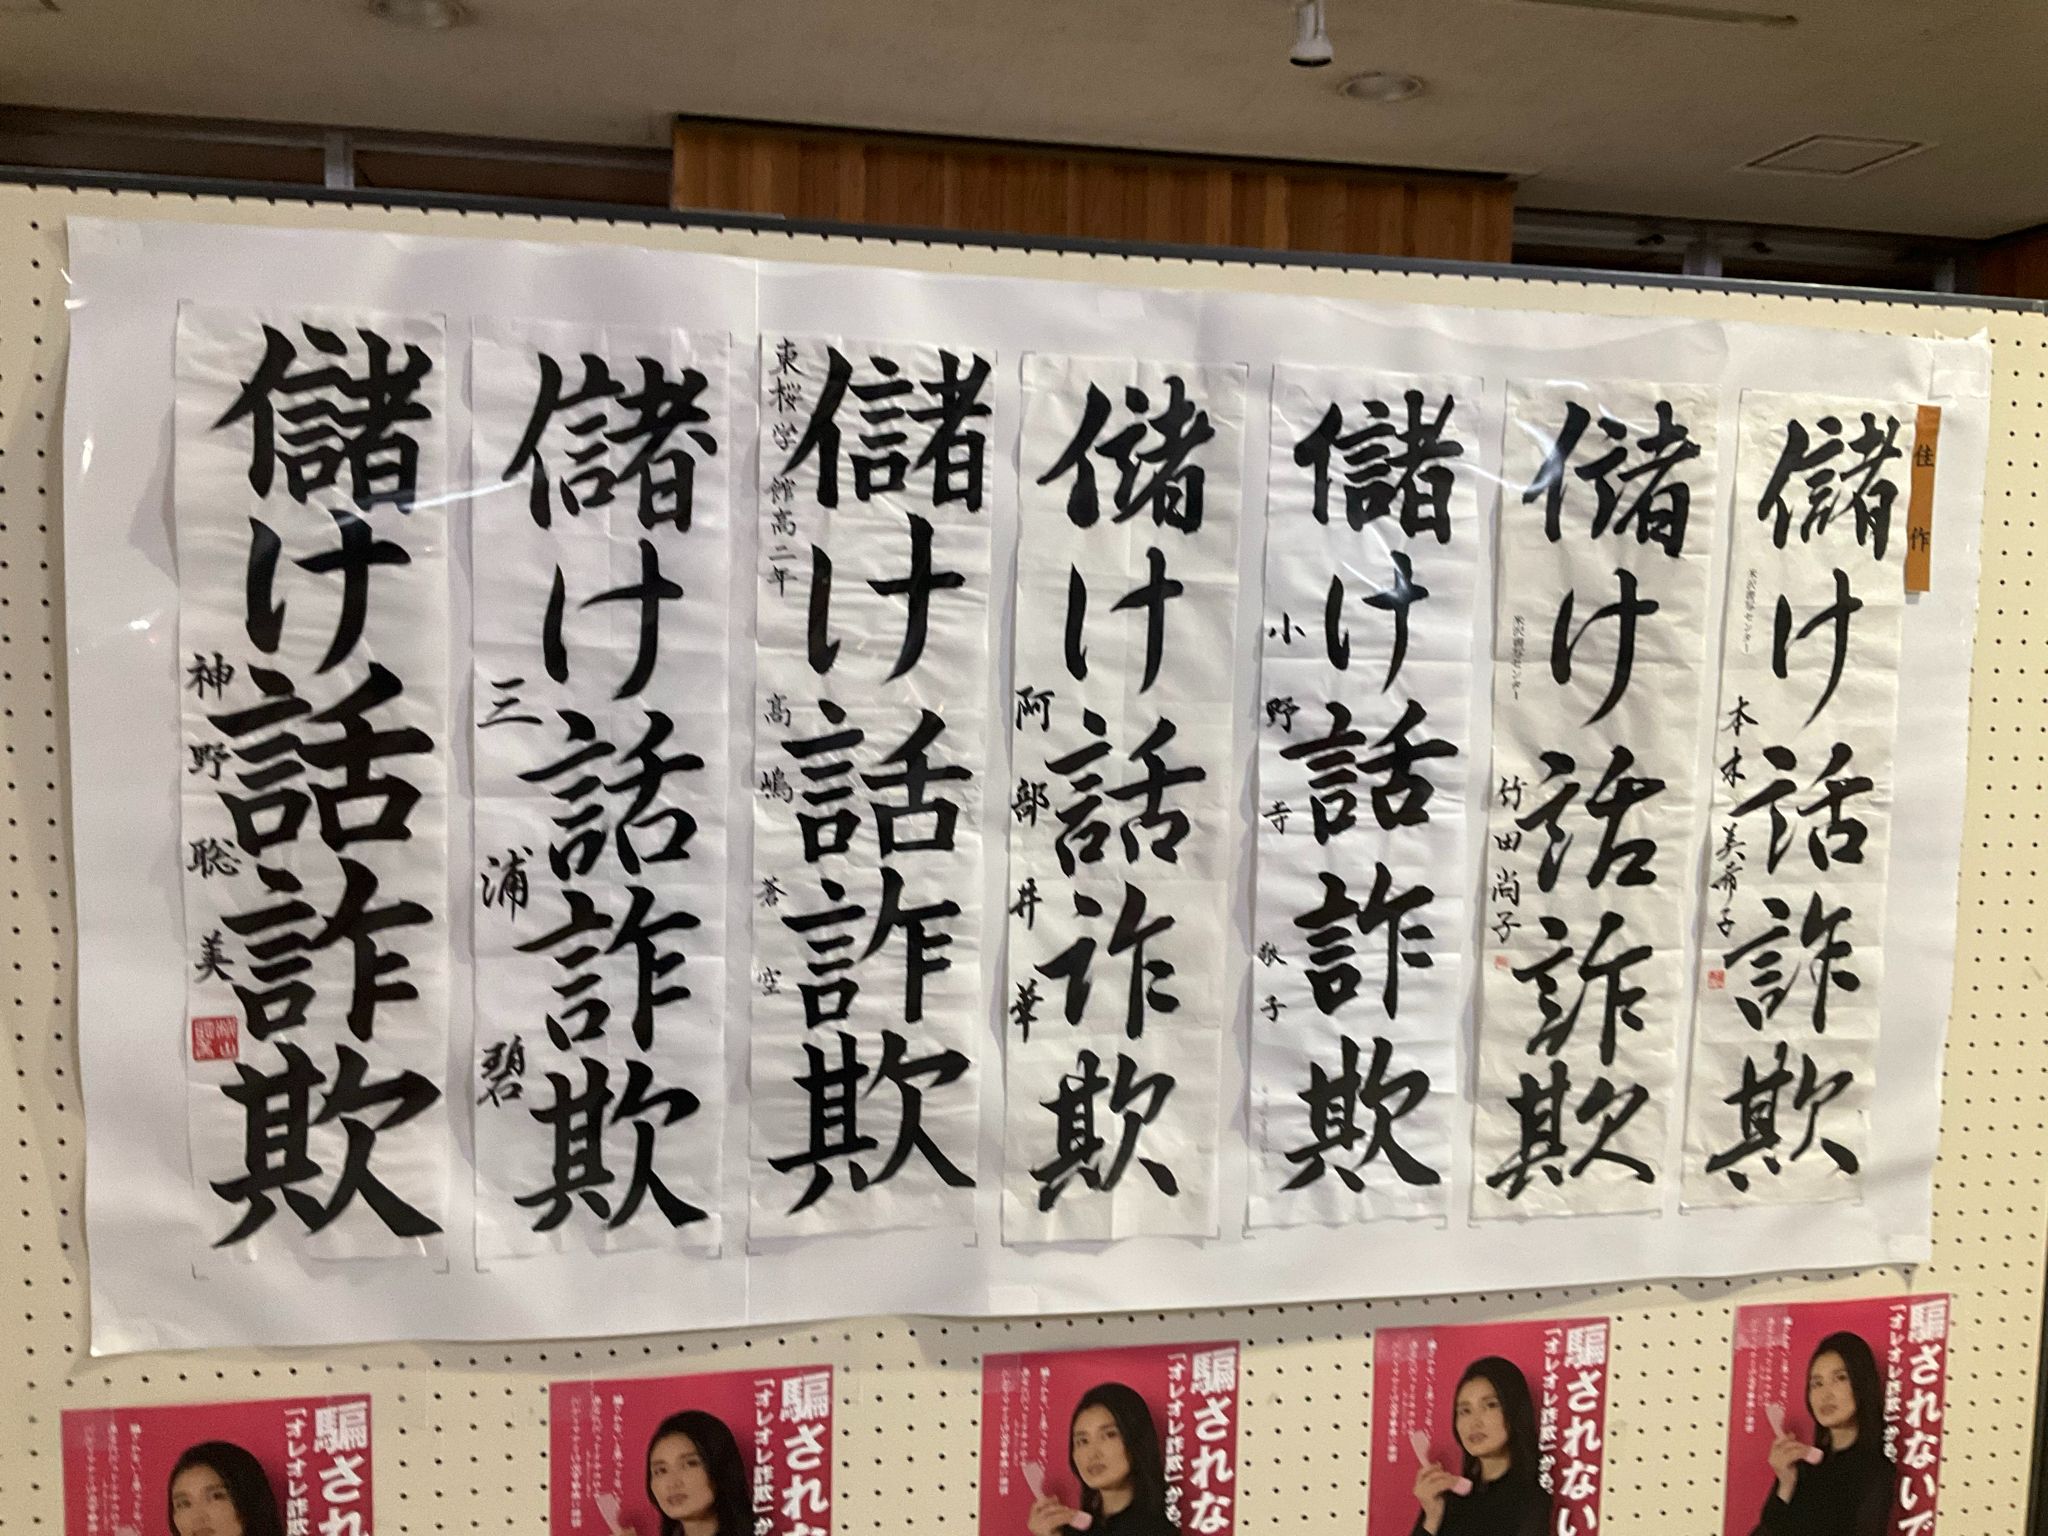 佳作
儲け話詐欺
米沢通学センター
本木美希子
儲け話詐欺
米沢通学センター
竹田尚子
儲け話詐欺
小野寺敬子
儲け話詐欺
阿部井華
東桜学館高二年
儲け話詐欺
高嶋蒼空
儲け話詐欺
三浦碧
儲け話詐欺
神野聡美
騙されないで
「オレオレ詐欺」かも。
騙されない
「オレオレ詐欺」かも。
騙されな
「オレオレ詐欺」かも
騙されな
「オレオレ詐欺」か
騙され
「オレオレ詐欺